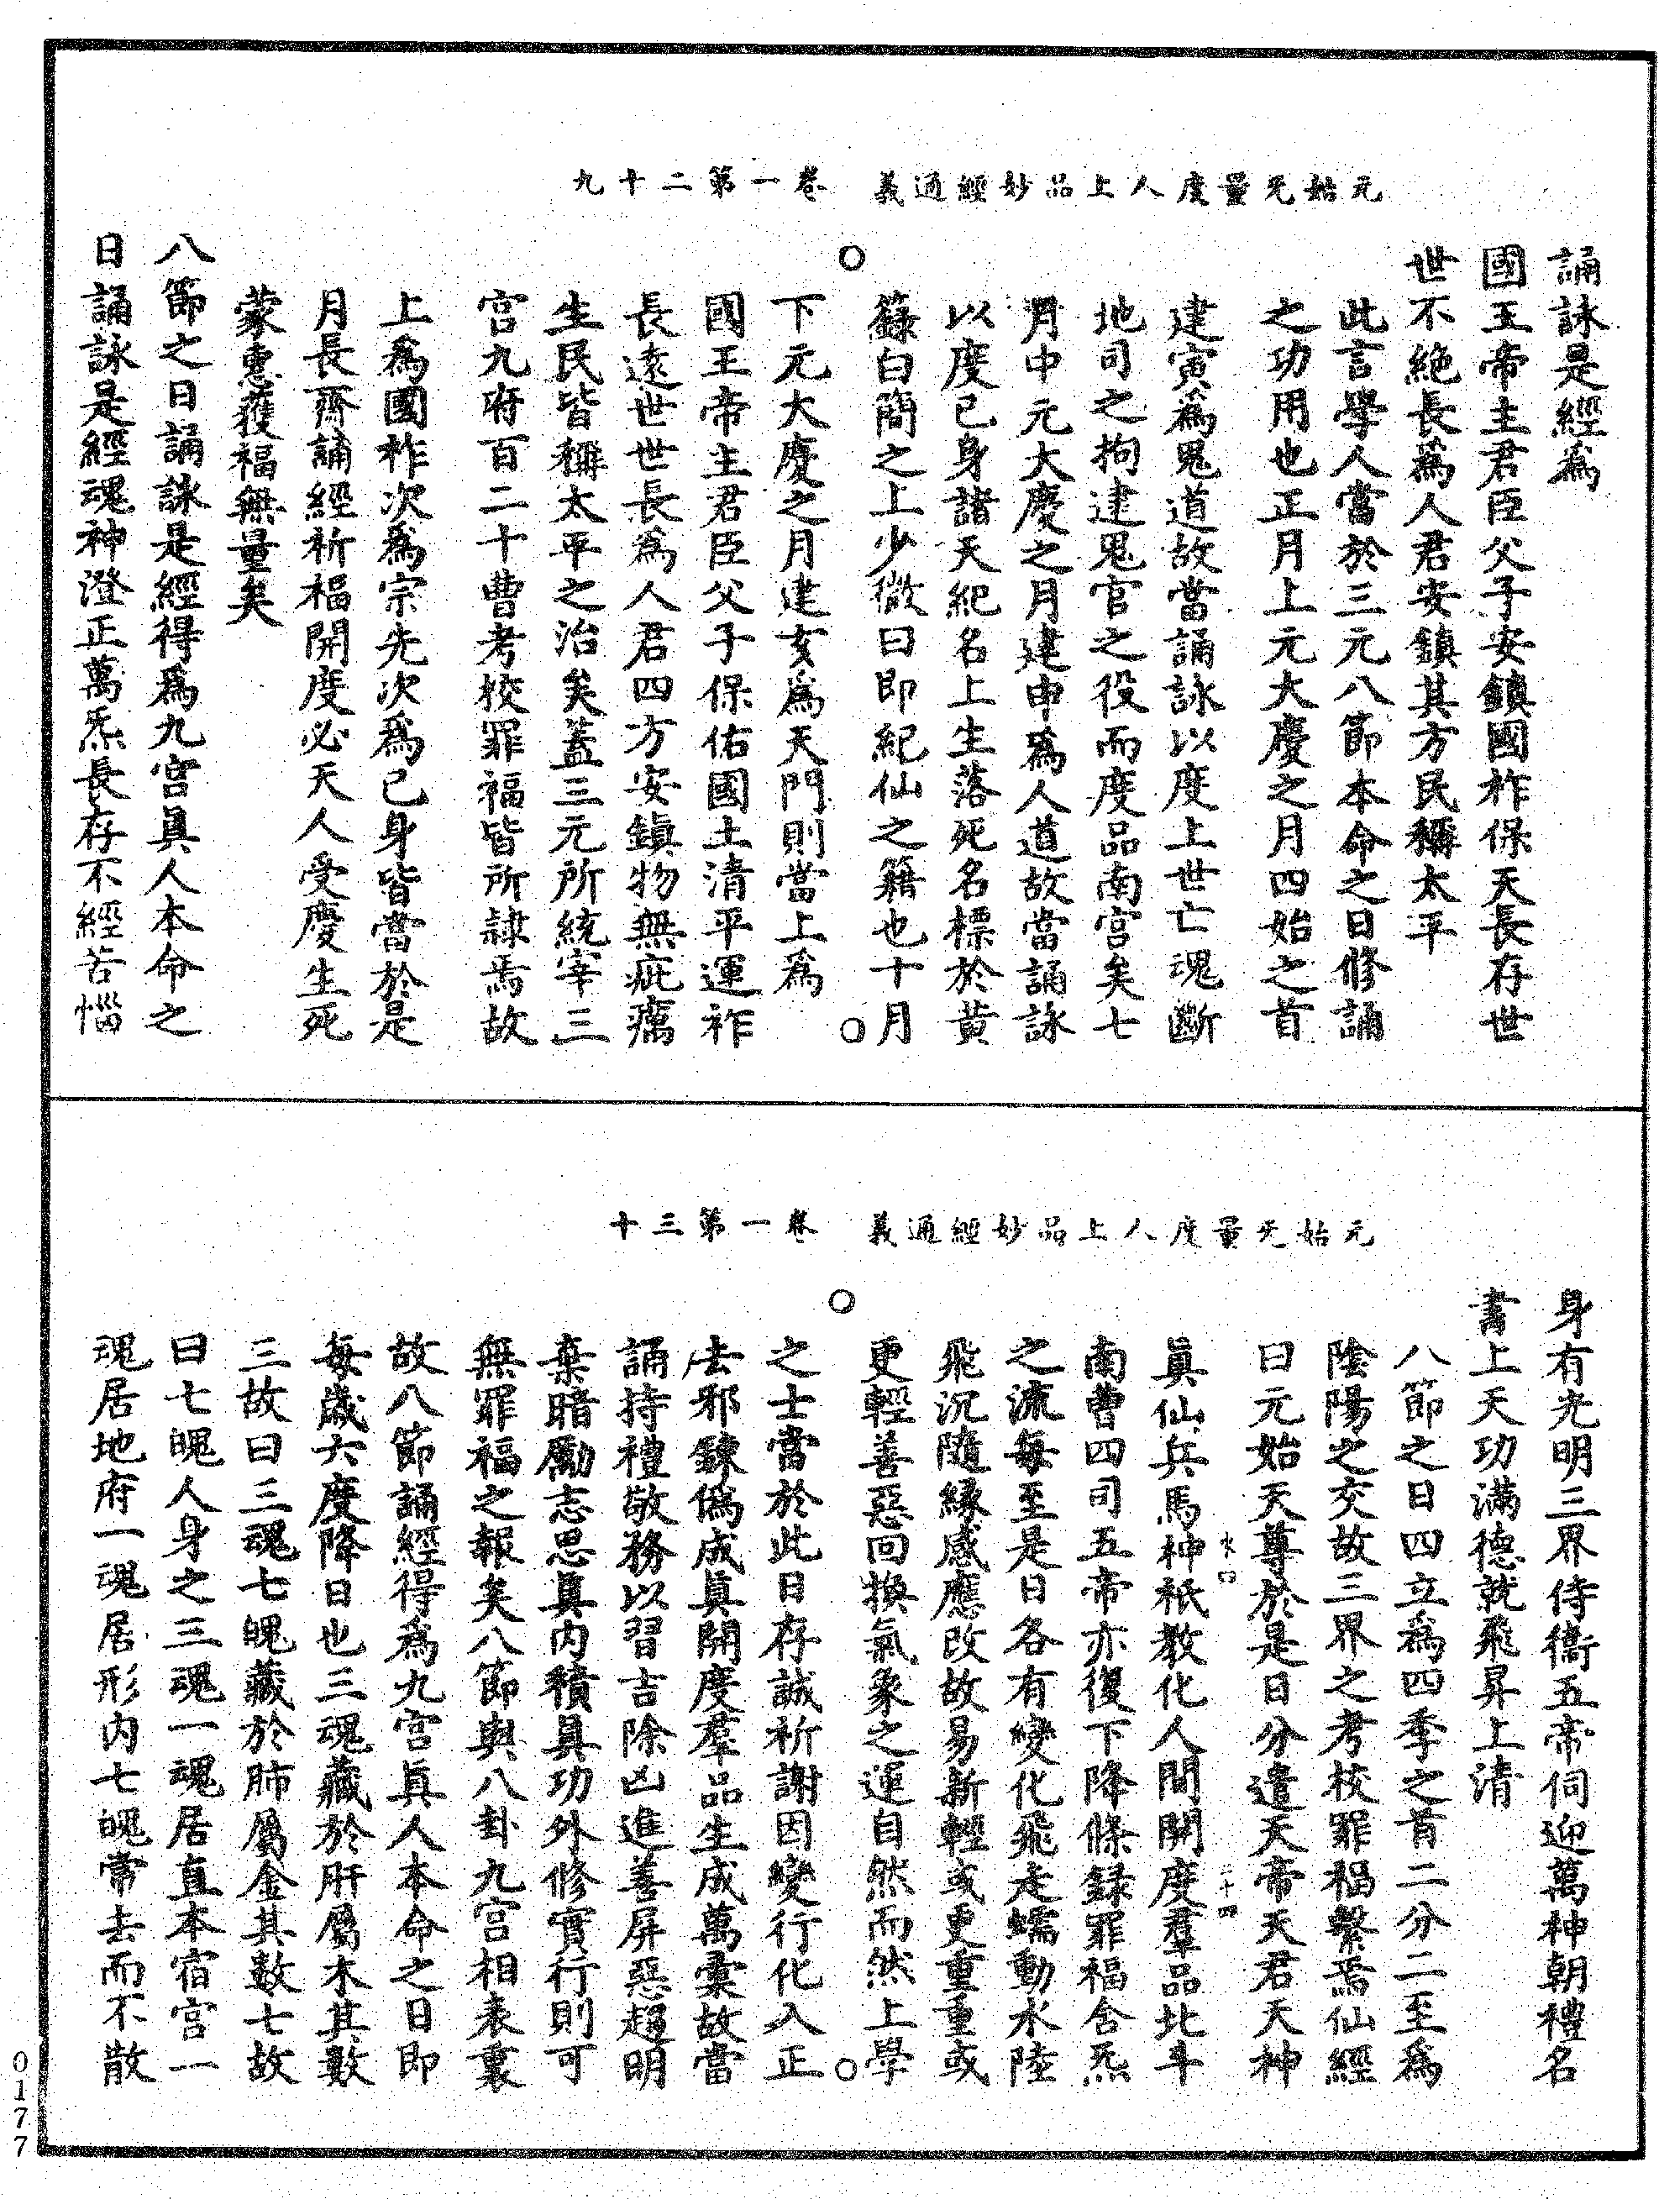 元始无量度人上品妙經通義　卷一第二十九
誦詠是經為
國王帝主君臣父子安鎮國祚保天長存世
世不絶長為人君安鎮其方民稱太平
此言學人當於三元八節本命之日修誦
之功用也正月上元大慶之月四始之首
建寅為鬼道故當誦詠以度上世亡魂斷
地司之拘逮鬼官之役而度品南宮矣七
月中元大慶之月建申為人道故當誦詠
以度已身諸天紀名上生落死名標於黃
籙白簡之上少微曰即紀仙之籍也十月
下元大慶之月建亥為天門則當上為
國王帝主君臣父子保佑國土清平運祚
長遠世世長為人君四方安鎮物無疵癘
生民皆稱太平之治矣蓋三元所統宰三
宮九府百二十曹考校罪福皆所隷焉故
上為國祚次為宗先次為己身皆當於是
月長齋誦經祈福開度必天人受慶生死
蒙惠獲福無量矣
八節之日誦詠是經得為九宮眞人本命之
日誦詠是經魂神澄正萬炁長存不經苦惱
元始无量度人上品妙經通義　卷一第三十
身有光明三界侍衞五帝伺迎萬神朝禮名
書上天功滿德就飛昇上清
八節之日四立為四季之首二分二至為
陰陽之交故三界之考校罪福繫焉仙經
曰元始天尊於是日分遣天帝天君天神
眞仙兵馬神祇教化人間開度羣品北斗
南曹四司五帝亦復下降條録罪福含炁
之流每至是日各有變化飛走蠕動水陸
飛沉隨緣感應改故易新輕或更重重或
更輕善惡回換氣象之運自然而然上學
之士當於此日存誠祈謝因變行化入正
去邪鍊偽成眞開度羣品生成萬彙故當
誦持禮敬務以習吉除凶進善屏惡趨明
棄暗勵志思眞內積眞功外修實行則可
無罪福之報矣八節與八卦九宮相表裏
故八節誦經得為九宮眞人本命之日即
每歲六度降日也三魂藏於肝屬木其數
三故曰三魂七魄藏於肺屬金其數七故
曰七魄人身之三魂一魂居直本宿宮一
魂居地府一魂居形內七魄常去而不散
0177